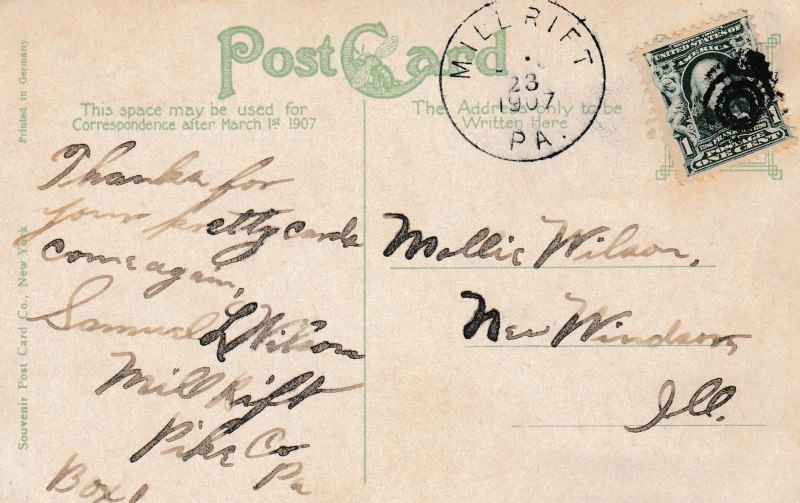 Printed in Germany.
Souvenir Post Card Co., New York
Post Card
This space may be used for
Correspondence after March 1st 1907
The Address only to be
Written Here
MILL RIFT
23
1907
PA.
UNITED STATES OF
AMERICA
1 1
POSTAGE
ONE CENT
Thanks for
your pretty cards
come again,
Samuel L Wilson
Mill Rift
Pike Co
Pa
Box 1
Mollie Wilson,
New Windsor,
Ill.